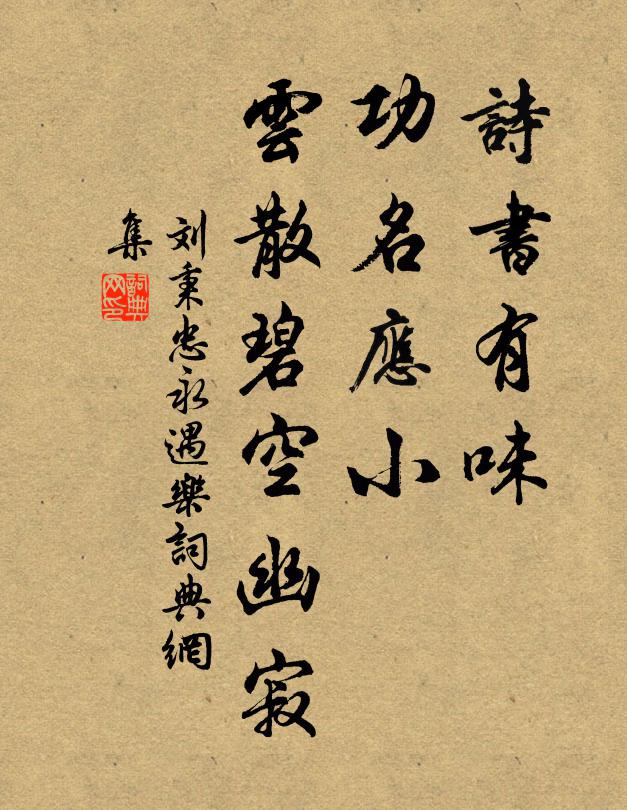 詩書有味
功名應小
雲散碧空幽寂
刘秉忠永遇樂詞典網
集
詞典网印